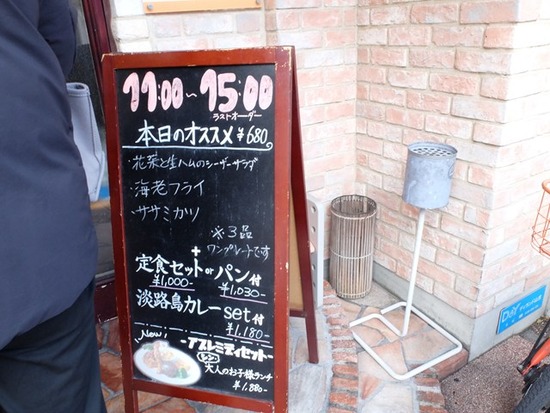 11:00~15:00
ラストオーダー
本日のオススメ ¥680
・花菜と生ハムのシーザーサラダ
・海老フライ
・ササミカツ
※3品
ワンプレートです
+
定食セット or パン付
¥1,000- ¥1,030-
淡路島カレーset付
¥1,180-
New!
-アスレミディセット-
大人のお子様ランチ
¥1,880-